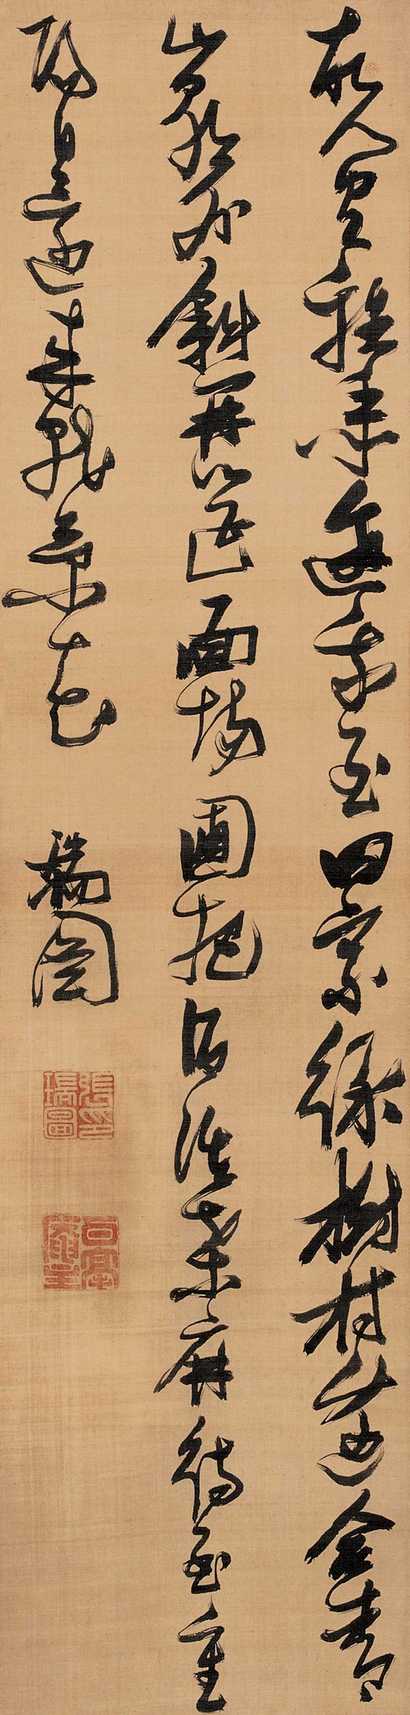 故人具雞黍邀我至田家綠樹村邊合青
山郭外斜開筵面場圃把酒話桑麻待至重
陽日還來就菊花 瑞圖
張瑞圖印
白毫庵主